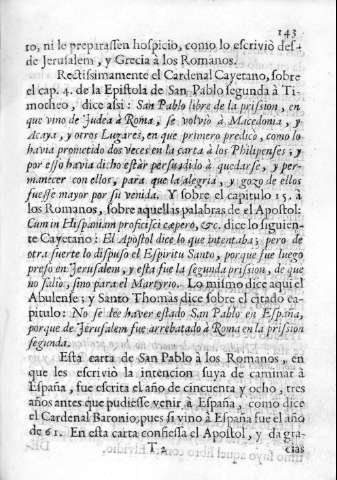 143
to, ni le preparassen hospicio, como lo escriviò des-
de Jerusalem, y Grecia à los Romanos.
Rectissimamente el Cardenal Cayetano, sobre
el cap. 4. de la Epistola de San Pablo segunda à Ti-
motheo, dice assi: San Pablo libre de la prission, en
que vino de Judea à Roma, se volviò à Macedonia, y
Acaya, y otros Lugares, en que primero predicò, como lo
havia prometido dos veces en la carta à los Philipenses; y
por esso havia dicho estàr persuadido à quedarse, y per-
manecer con ellos, para que la alegria, y gozo de ellos
fuesse mayor por su venida. Y sobre el capitulo 15. à
los Romanos, sobre aquellas palabras de el Apostol:
Cum in Hispaniam proficisci cœpero, &c. dice lo siguien-
te Cayetano: El Apostol dice lo que intentaba; pero de
otra suerte lo dispuso el Espiritu Santo, porque fue luego
preso en Jerusalem, y esta fue la segunda prission, de que
no saliò, sino para el Martyrio. Lo mismo dice aqui el
Abulense; y Santo Thomàs dice sobre el citado ca-
pitulo: No se lee haver estado San Pablo en España,
porque de Jerusalem fue arrebatado à Roma en la prission
segunda.
Esta carta de San Pablo à los Romanos, en
que les escriviò la intencion suya de caminar à
España, fue escrita el año de cincuenta y ocho, tres
años antes que pudiesse venir à España, como dice
el Cardenal Baronio; pues si vino à España fue el año
de 61. En esta carta confiessa el Apostol, y da gra-
T 2 cias